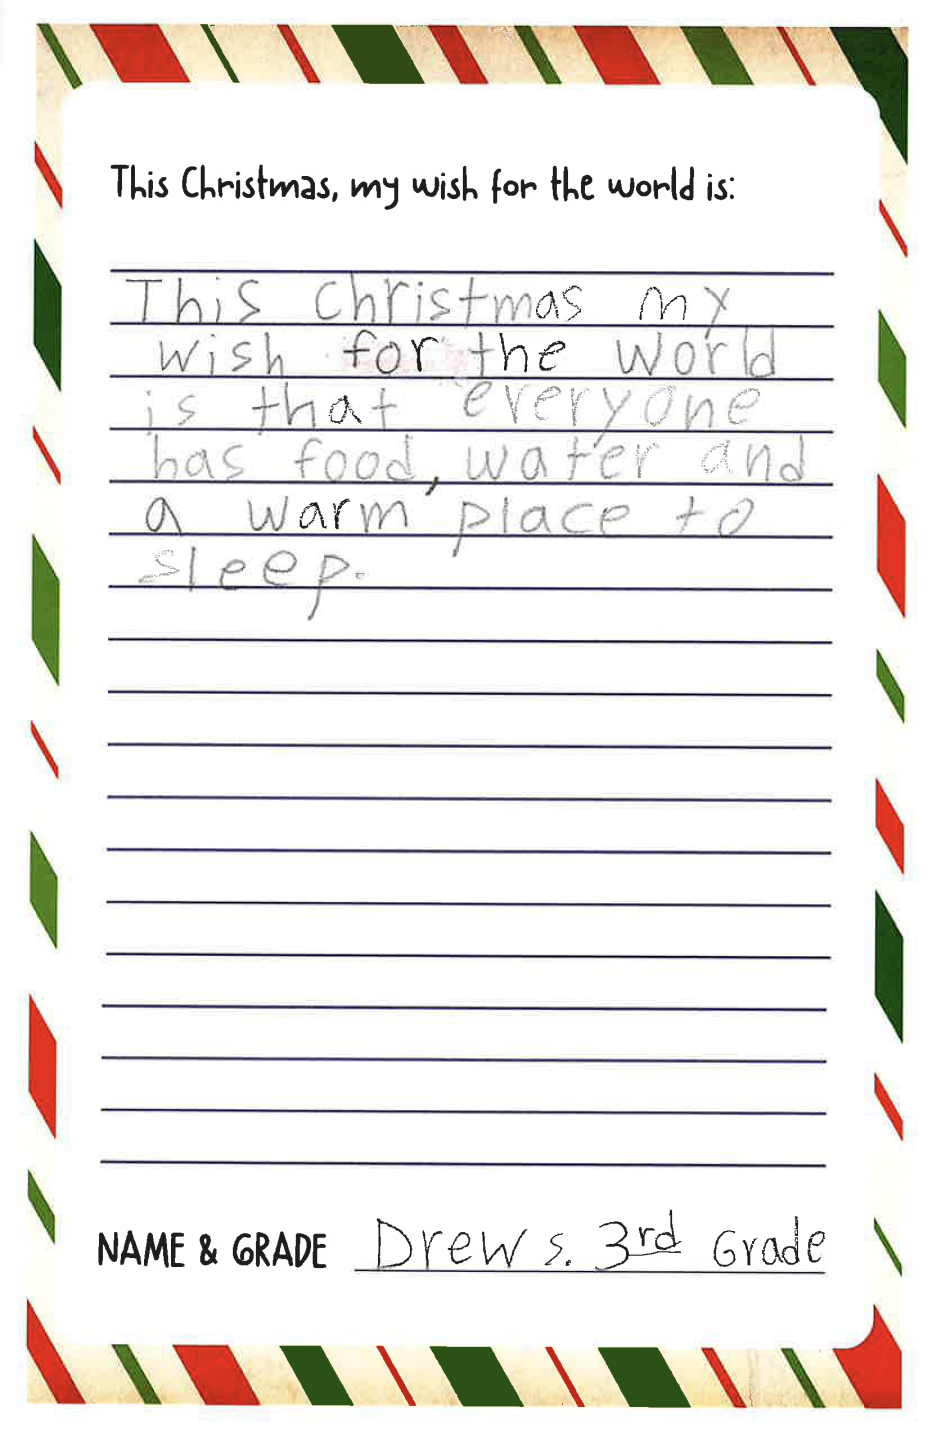 This Christmas, my wish for the world is:
This Christmas my
wish for the world
is that everyone
has food, water and
a warm place to
sleep.
NAME & GRADE Drew S. 3rd Grade